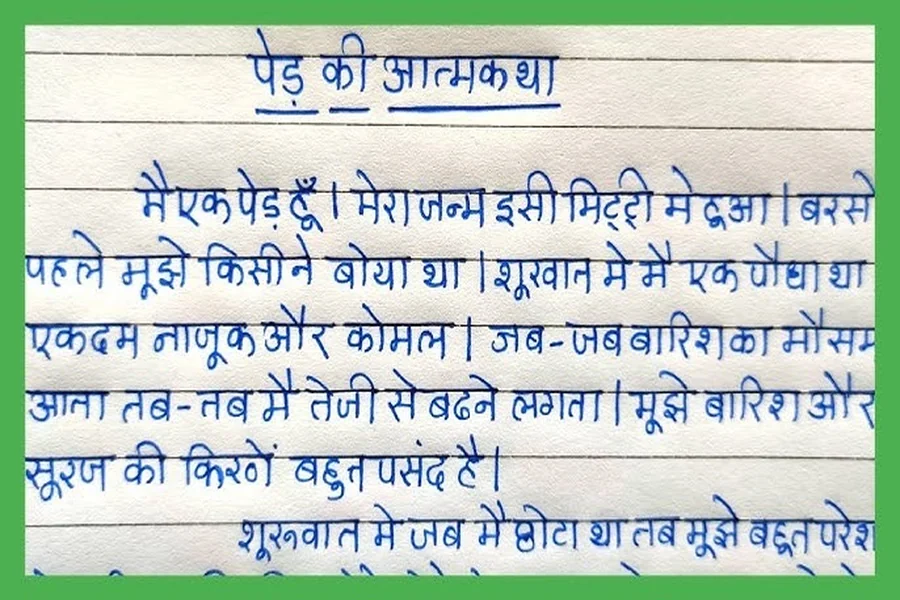 पेड़ की आत्मकथा
मै एक पेड़ हूँ । मेरा जन्म इसी मिट्टी मे हूआ । बरसो
पहले मूझे किसीने बोया था । शूरवात मे मै एक पौधा था
एकदम नाजूक और कोमल । जब-जब बारिश का मौसम
आता तब-तब मै तेजी से बढने लगता । मूझे बारिश और
सूरज की किरणें बहुत पसंद है ।
शूरूवात मे जब मै छोटा था तब मूझे बहूत परेश